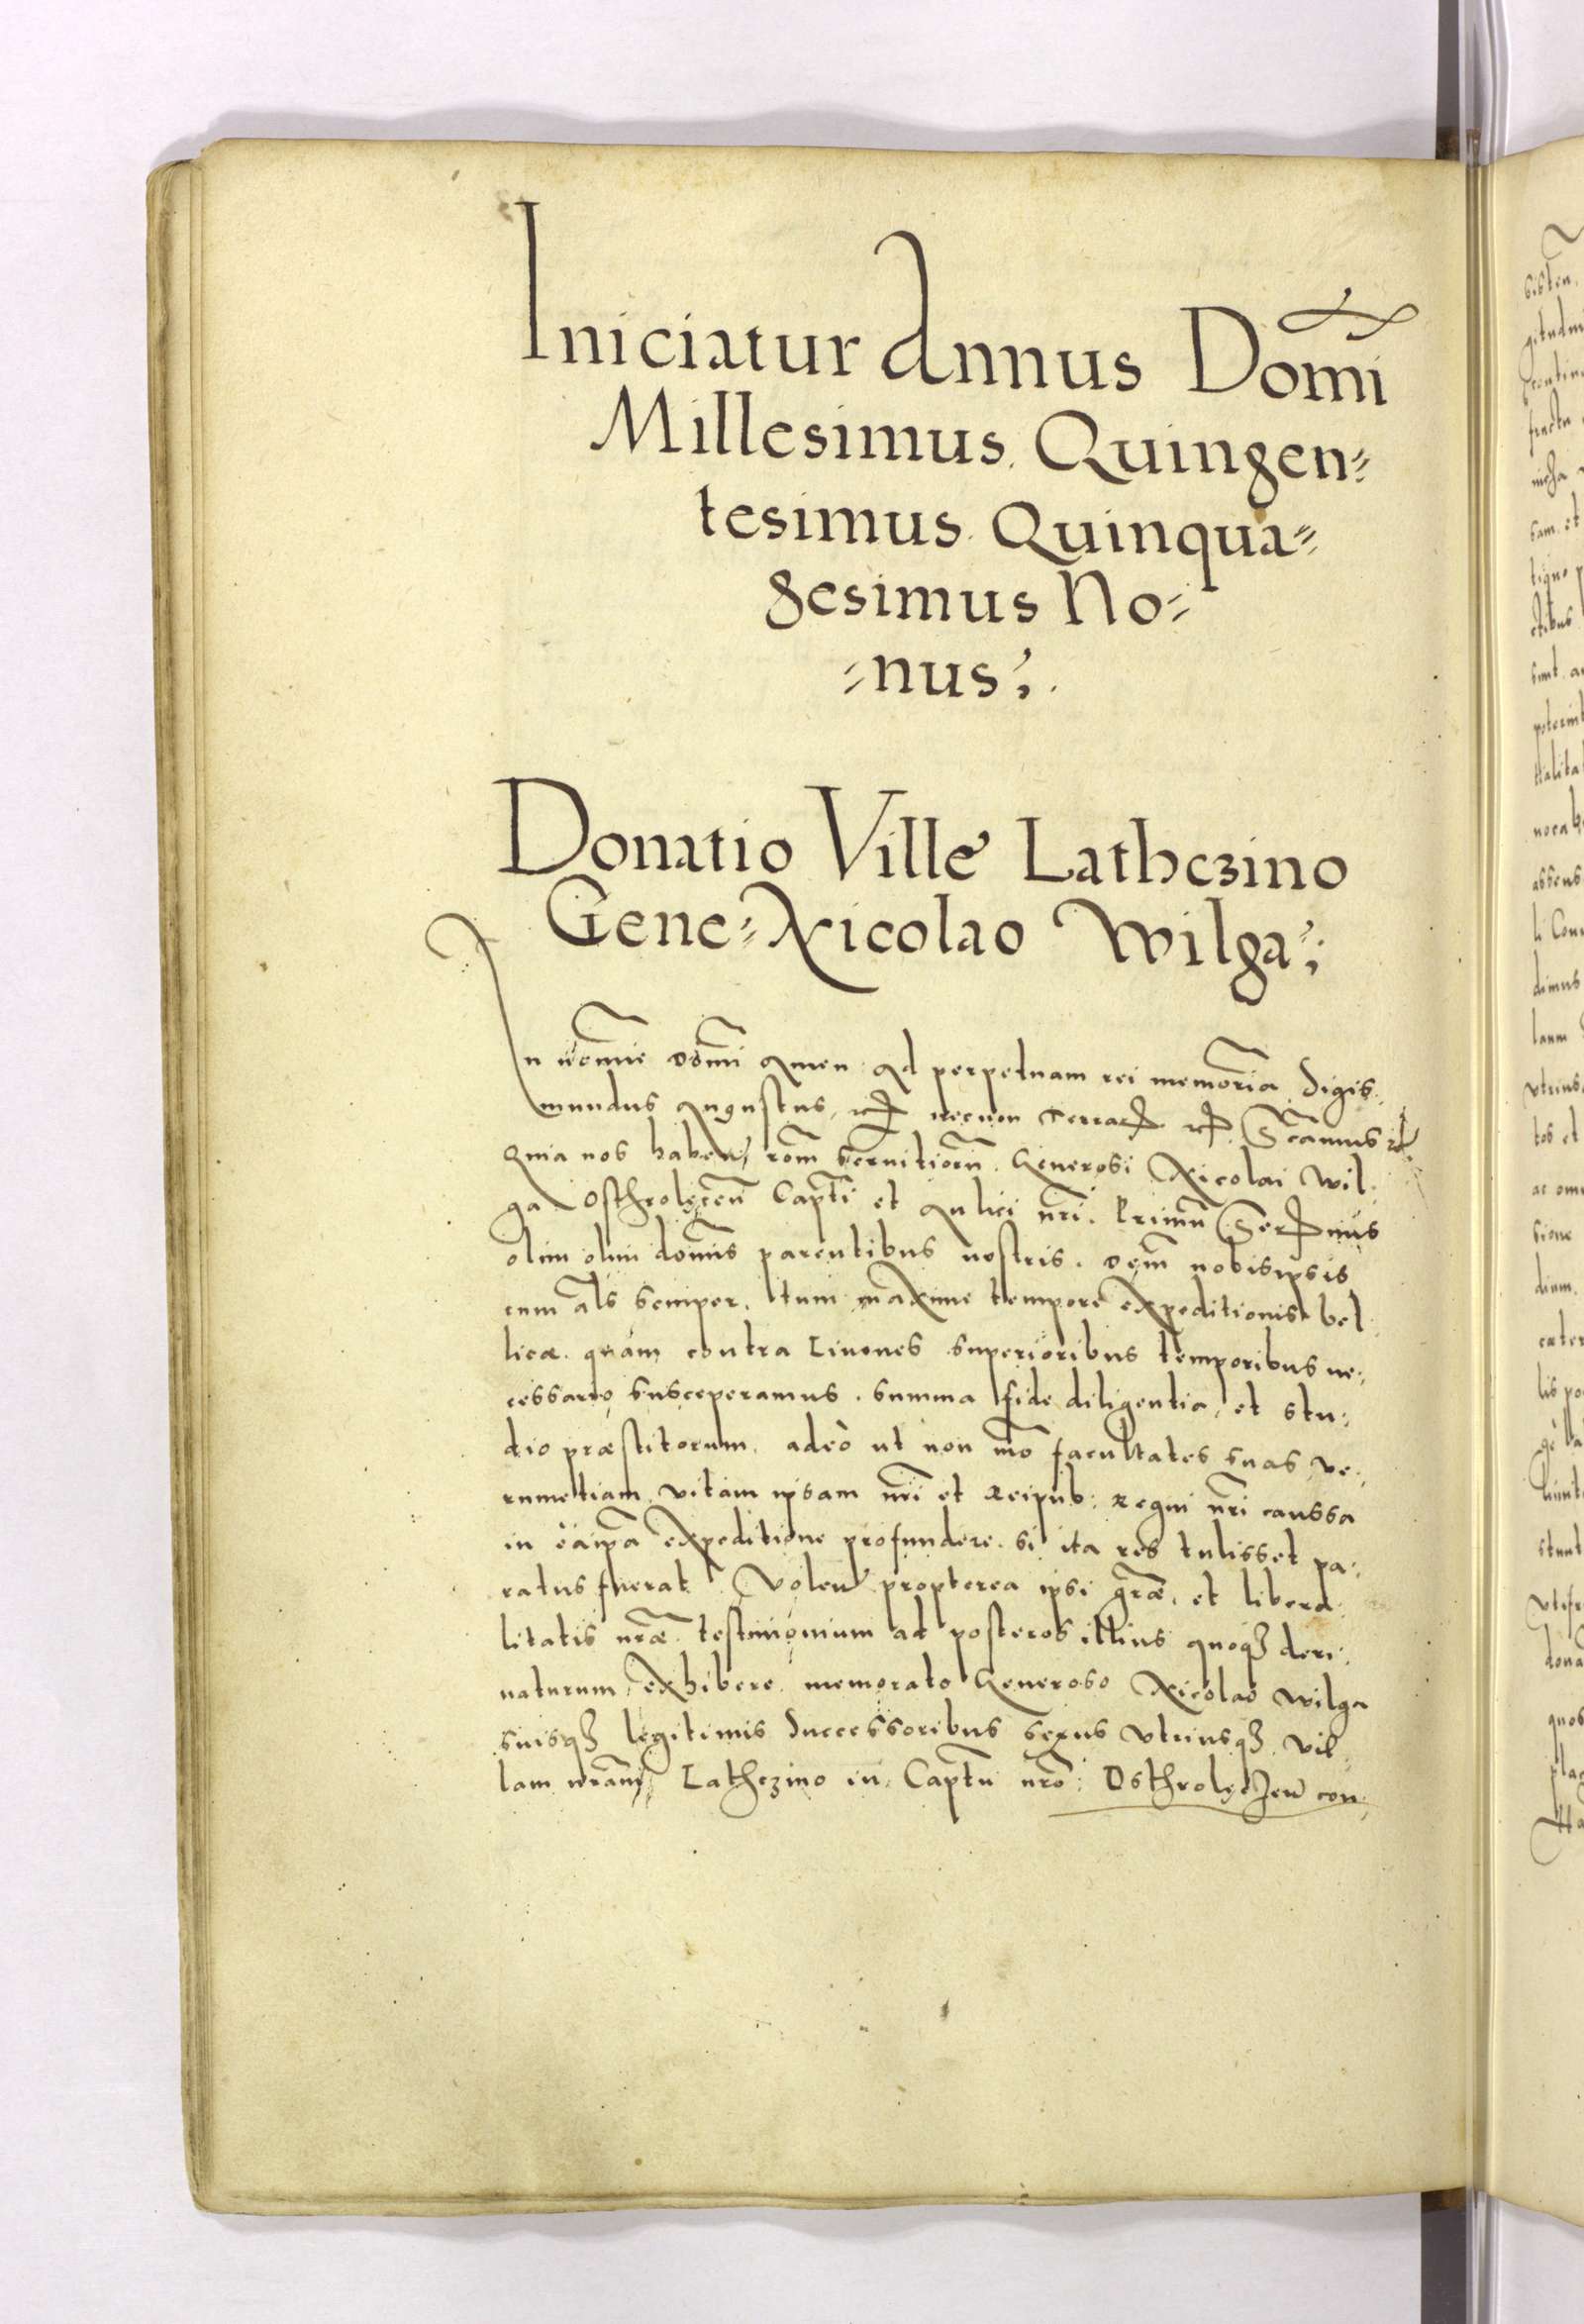 Iniciatur Annus Domi
Millesimus Quingen=
tesimus Quinqua=
gesimus No=
=nus;
Donatio Ville Lathczino
Gene= Nicolao Wilga;
In nomie domi Amen Ad perpetuam rei memoria Sigis
mundus Augustus, necnon Terrar
Quia nos haben, rom servitioru Generosi Nicolai Wil
ga Osthrolęcen Capti et Aulici nri. Primu
olim olim domis parentibus nostris. Dem nobisipsis
cum als semper, tum maxime tempore expeditionis bel
licæ quam contra Livones superioribus temporibus ne=
cessario susceperamus. summa fide diligentia, et stu=
dio præstitorum, adeò ut non mo facultates suas, ve=
rumetiam vitam ipsam nri et Reipub: Regni nri caussa
in eaipa expeditione profundere. si ita res tulisset pa=
ratus fuerat Volen propterea ipsi græ, et libera
litatis nræ testimonium ad posteros illius quoqȝ deri=
vaturum, exhibere memorato Generoso Nicolao Wilga
suisqȝ legitimis Successoribus sexus utriusqȝ vil
lam nram Lathczino in Captu nro: Osthrolęczen con=